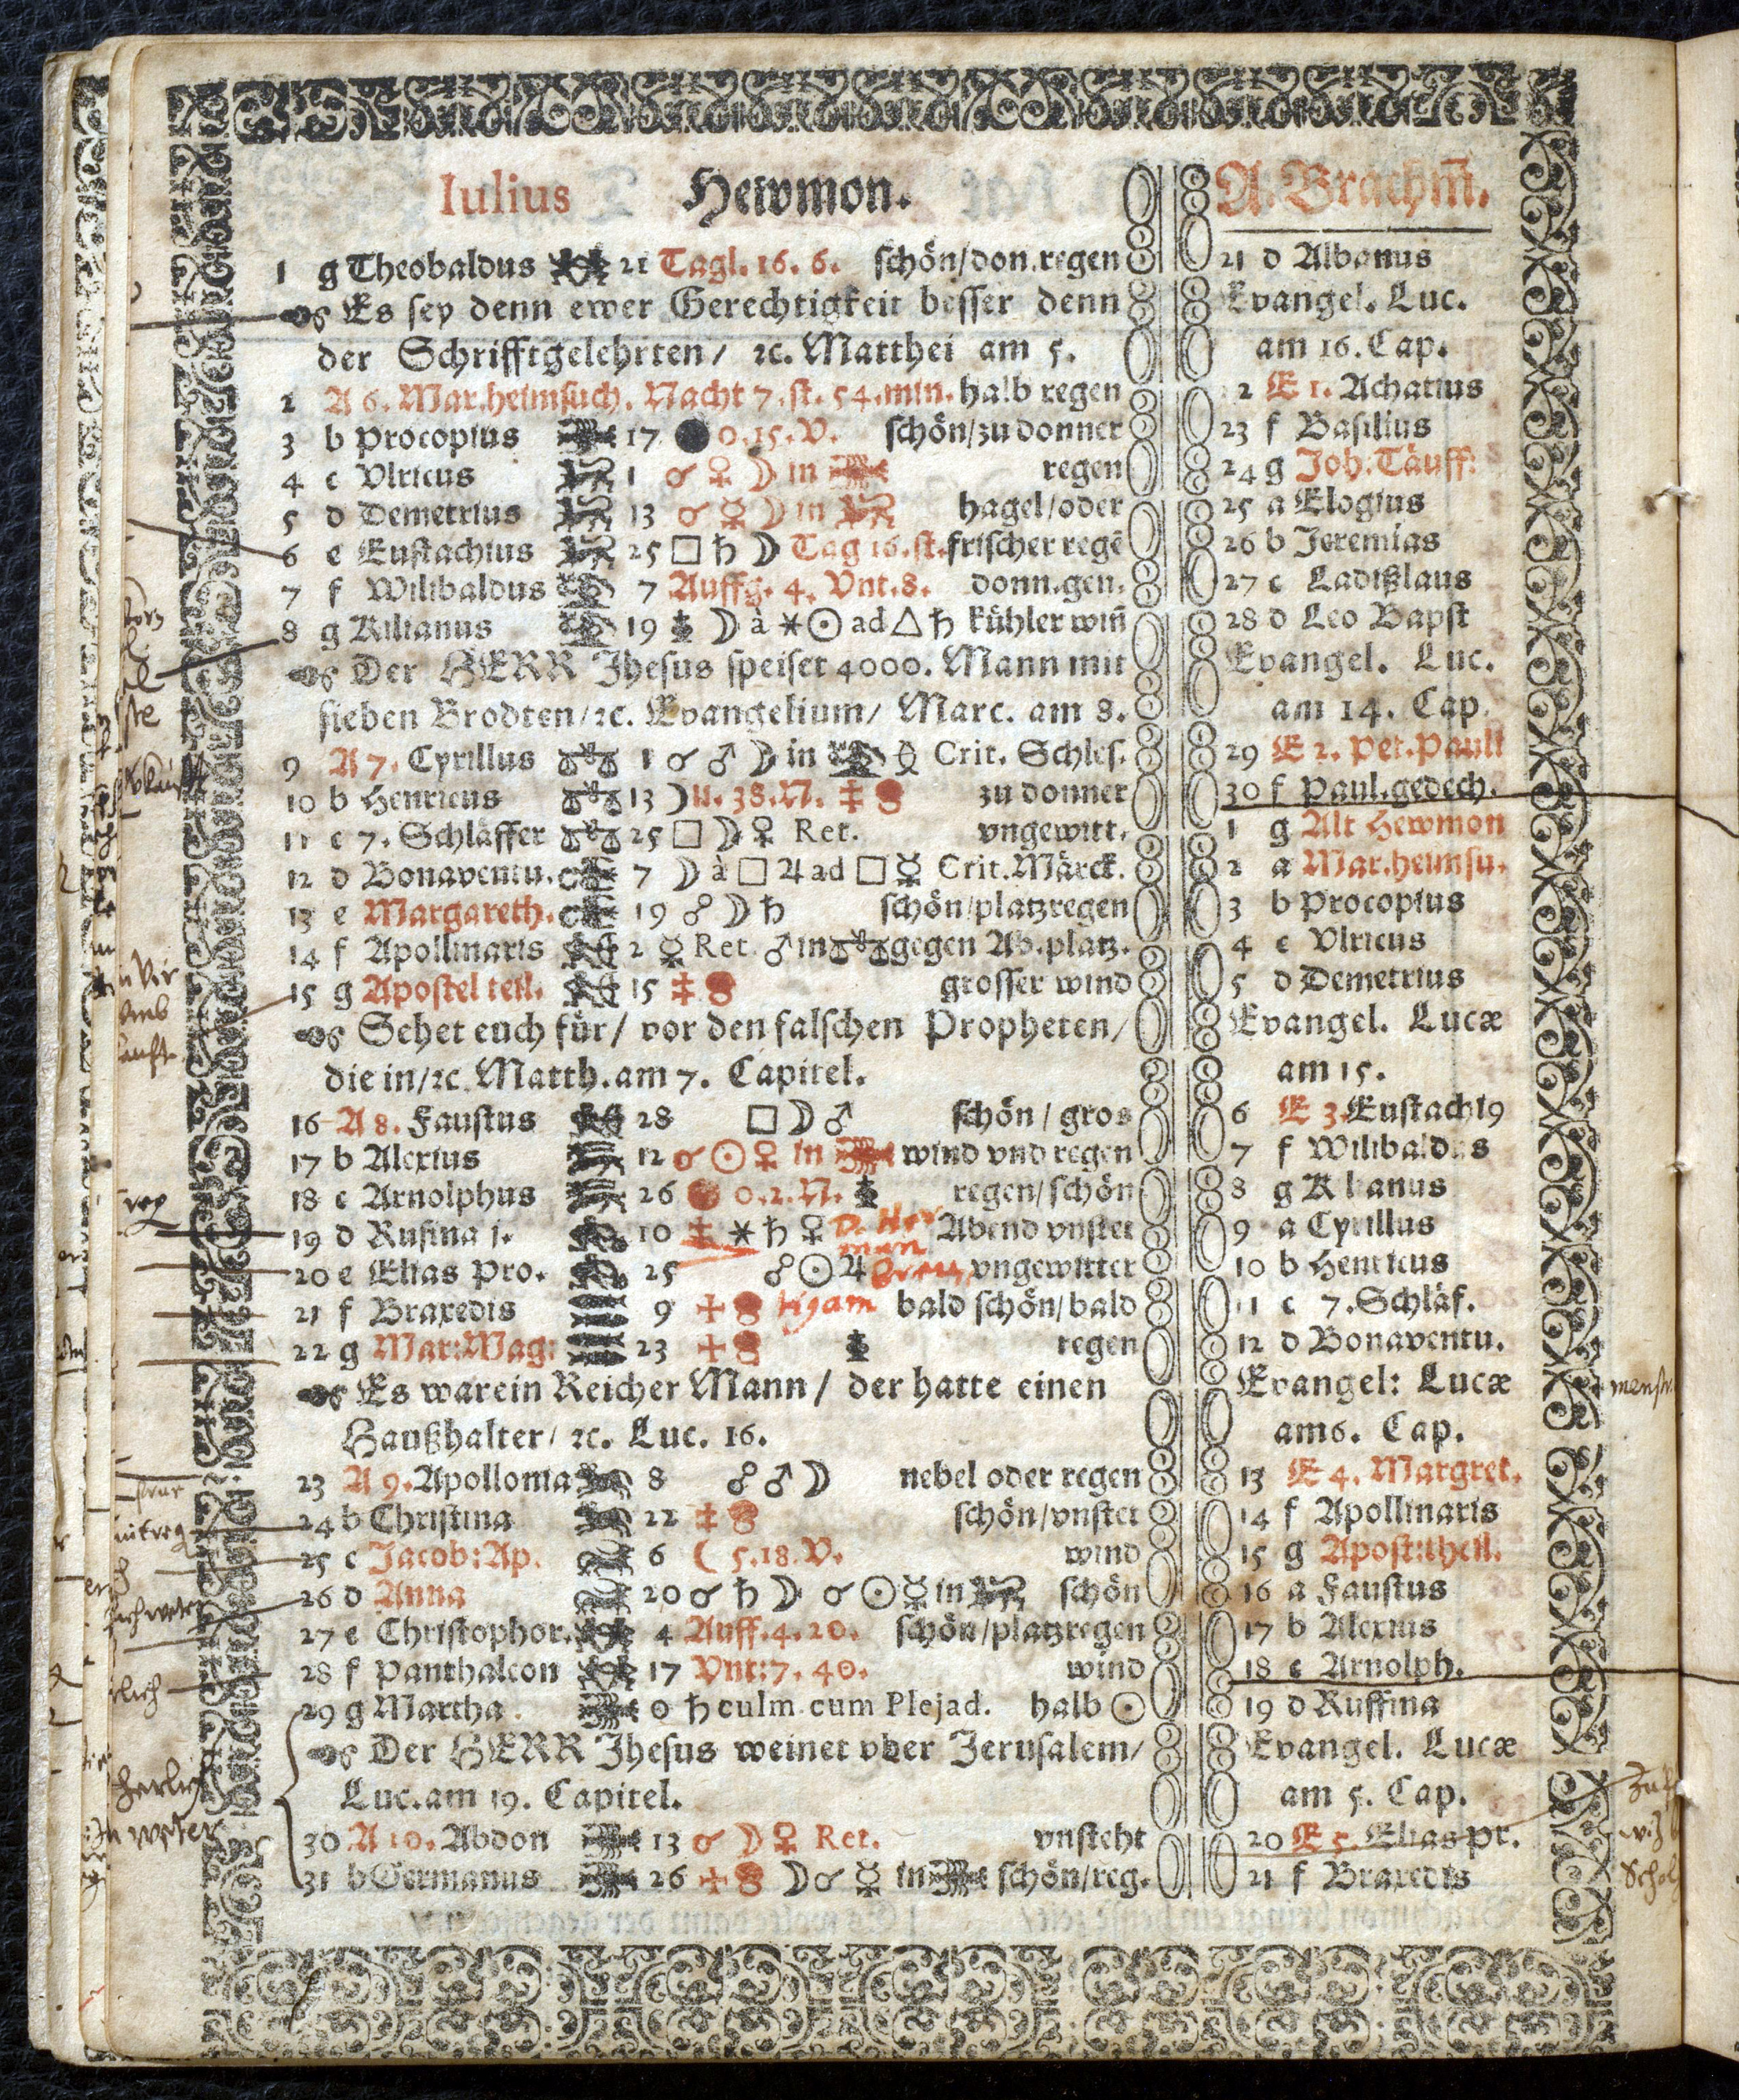 Iulius Hewmon. A. Brachm̃.
1 g Theobaldus 21 Tagl. 16. 6. schön/don.regen 21 d Albanus
Es sey denn ewer Gerechtigkeit besser denn Evangel. Luc.
der Schrifftgelehrten/ ꝛc. Matthei am 5. am 16. Cap.
2 A 6. Mar.heimsuch. Nacht 7. st. 54. min. halb regen 2 E 1. Achatius
3 b Procopius 17 ● 0.15.V. schön/zu donner 23 f Basilius
4 c Vlricus 1 ☌ ♀ ☽ in regen 24 g Joh. Täuff:
5 d Demetrius 13 ☌ ☿ ☽ in hagel/oder 25 a Elogius
6 e Eustachius 25 □ ♄ ☽ Tag 16. st. frischer regē 26 b Jeremias
7 f Wilibaldus 7 Auffg. 4. Vnt. 8. donn.gen. 27 c Ladißlaus
8 g Kilianus 19 ☽ à ⚹ ☉ ad △ ♄ kühler win̄ 28 d Leo Bapst
Der HERR Jhesus speiset 4000. Mann mit Evangel. Luc.
sieben Brodten/ꝛc. Evangelium/ Marc. am 8. am 14. Cap.
9 A 7. Cyrillus ♎ 1 ☌ ♂ ☽ in Crit. Schles. 29 E 2. Pet. Pauli
10 b Henricus ♎ 13 ☽ 11. 38. N. ‡ zu donner 30 f Paul.gedech.
11 c 7. Schläffer ♎ 25 □ ☽ ♀ Ret. vngewitt. 1 g Alt Hewmon
12 d Bonaventu. 7 ☽ à □ ♃ ad □ ☿ Crit. Märck. 2 a Mar.heimsu.
13 e Margareth. 19 ☍ ☽ ♄ schön/platzregen 3 b Procopius
14 f Apollinaris 2 ☿ Ret. ♂ in ♎ gegen Ab. platz. 4 c Vlricus
15 g Apostel teil. 15 ‡ grosser wind 5 d Demetrius
Sehet euch für/ vor den falschen Propheten/ Evangel. Lucæ
die in/ꝛc. Matth. am 7. Capitel. am 15.
16 A 8. Faustus 28 □ ☽ ♂ schön / gros 6 E 3. Eustachi9
17 b Alexius 12 ☌ ☉ ♀ in wind vnd regen 7 f Wilibaldus
18 c Arnolphus 26 0. 2. N. regen/schön 8 g Kilianus
19 d Rufina j. 10 ‡ ⚹ ♄ ♀ Abend vnstet 9 a Cyrillus
20 e Elias Pro. 25 ☍ ☉ ♃ vngewitter 10 b Henricus
21 f Braxedis 9 + bald schön/bald 11 c 7. Schläf.
22 g Mar:Mag: 23 + regen 12 d Bonaventu.
Es war ein Reicher Mann / der hatte einen Evangel: Lucæ
Haußhalter/ ꝛc. Luc. 16. am 6. Cap.
23 A 9. Apollonia 8 ☍ ♂ ☽ nebel oder regen 13 E 4. Margret.
24 b Christina 22 ‡ schön/vnstet 14 f Apollinaris
25 c Jacob: Ap. 6 ☾ 5.18.V. wind 15 g Apost:theil.
26 d Anna 20 ☌ ♄ ☽ ☌ ☉ ☿ in schön 16 a Faustus
27 e Christophor. 4 Auff. 4. 20. schön/platzregen 17 b Alexius
28 f Panthaleon 17 Vnt: 7. 40. wind 18 c Arnolph.
29 g Martha. 0 ♄ culm. cum Plejad. halb ☉ 19 d Ruffina
Der HERR Jhesus weinet vber Jerusalem/ Evangel. Lucæ
Luc. am 19. Capitel. am 5. Cap.
30 A 10. Abdon 13 ☌ ☽ ♀ Ret. vnsteht 20 E 5. Elias pr.
31 b Germanus 26 + ☽ ☌ ☿ in schön/reg. 21 f Braxedis